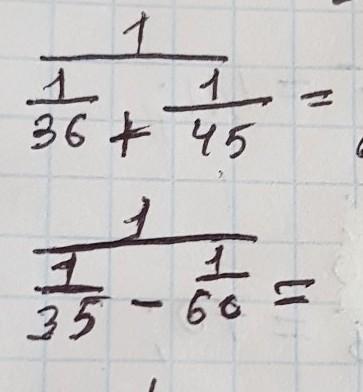 1
1/36 + 1/45 =
1
1/35 - 1/60 =